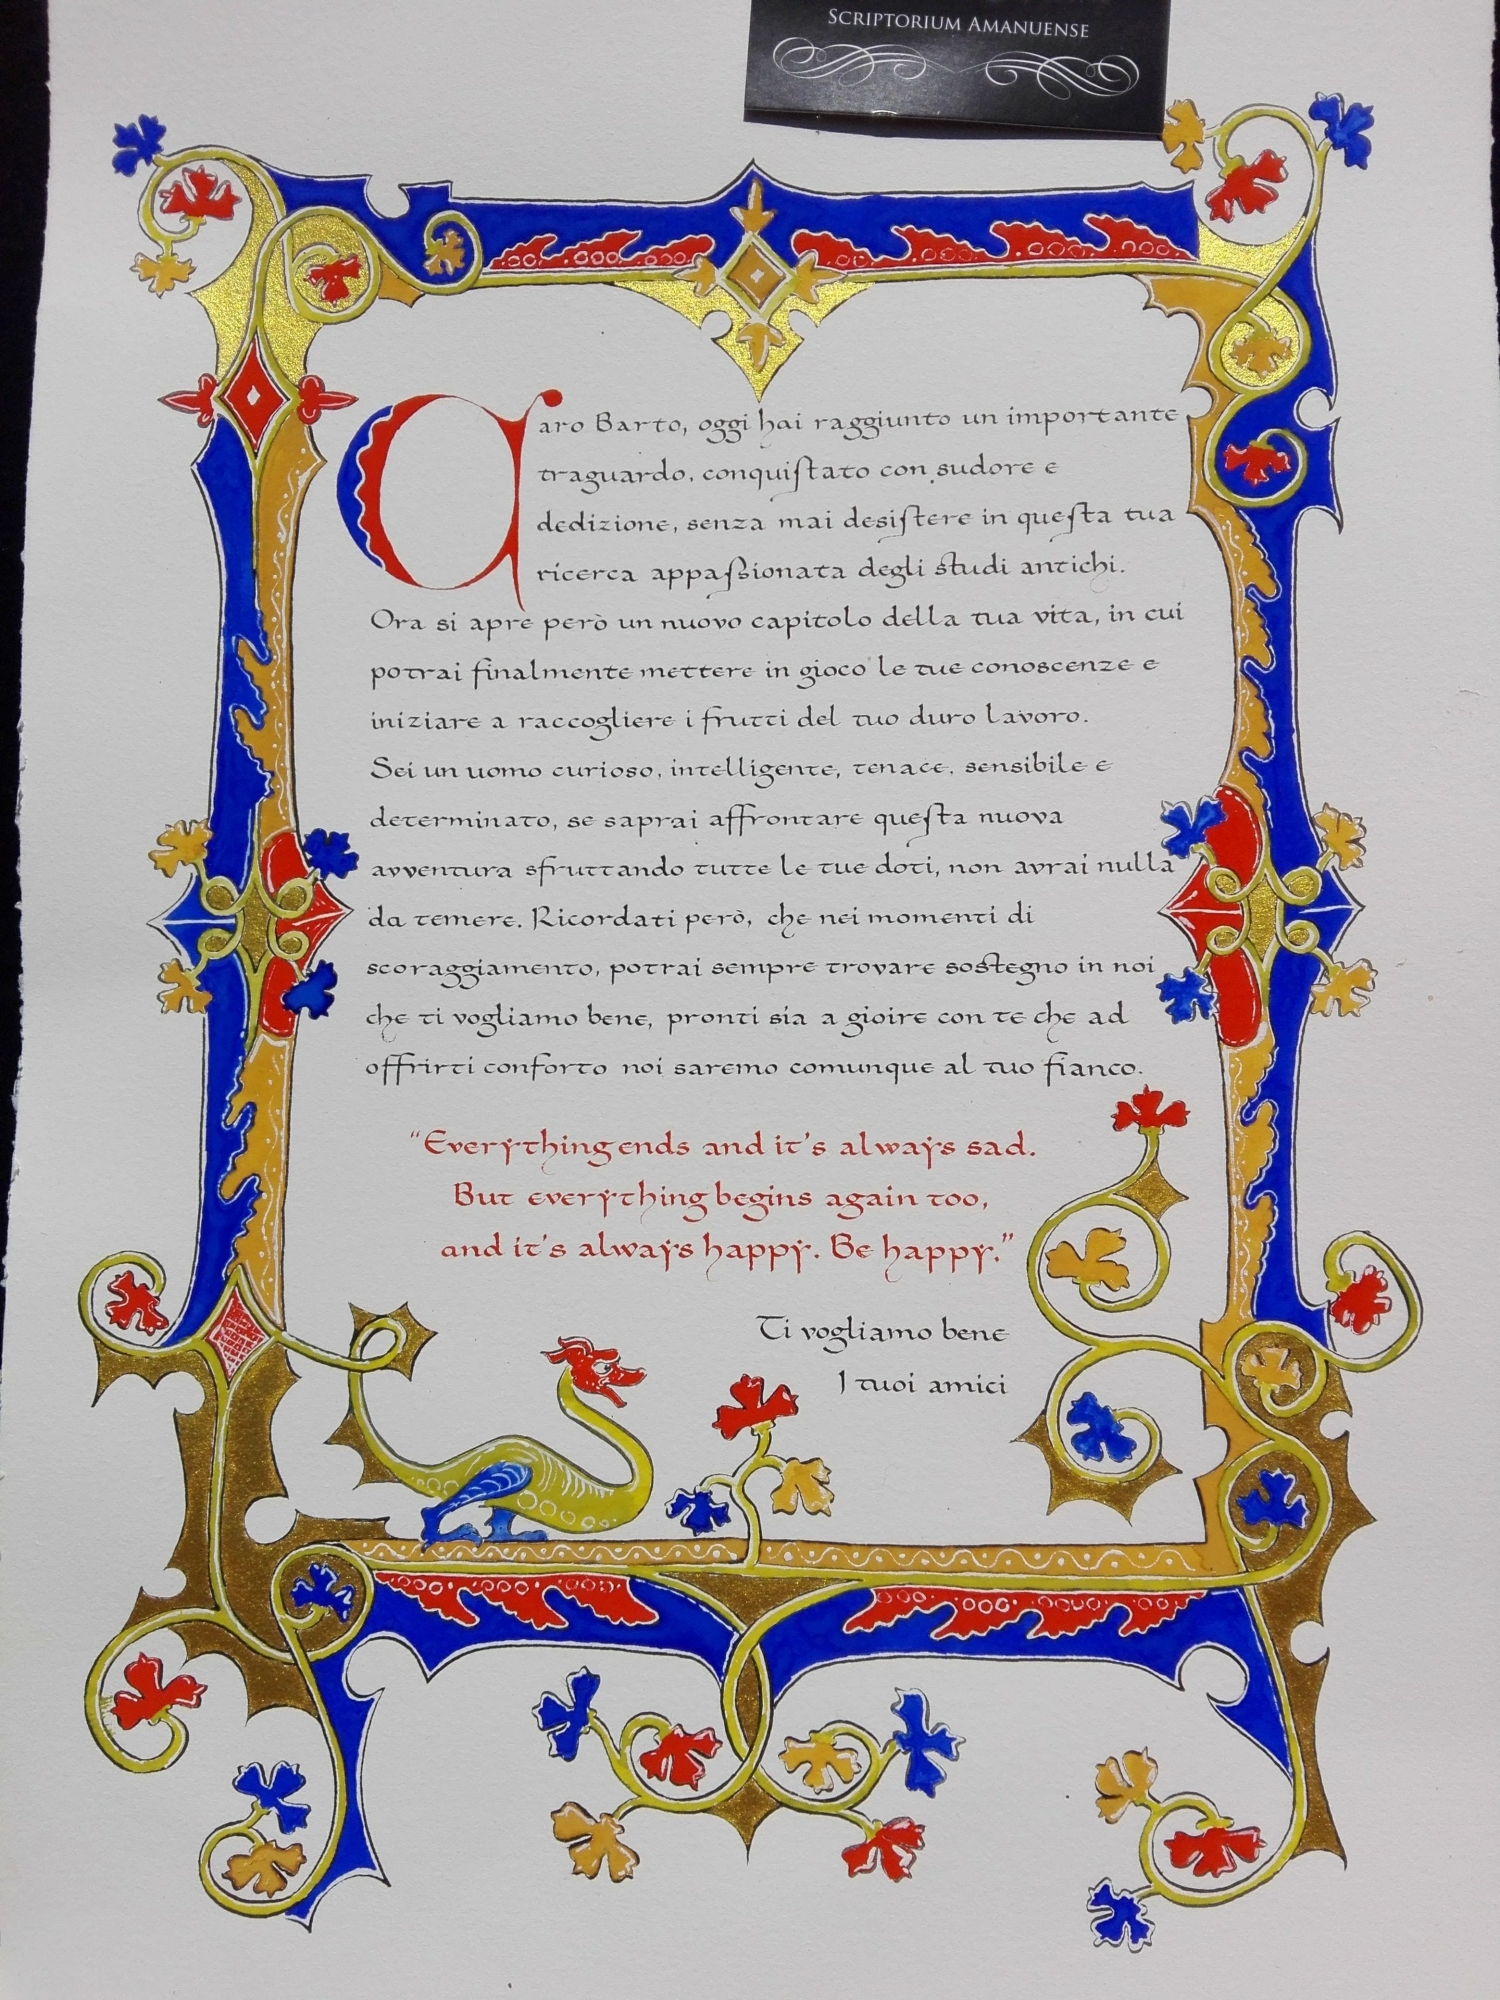 SCRIPTORIUM AMANUENSE
Caro Barto, oggi hai raggiunto un importante
traguardo, conquistato con sudore e
dedizione, senza mai desistere in questa tua
ricerca appassionata degli studi antichi.
Ora si apre però un nuovo capitolo della tua vita, in cui
potrai finalmente mettere in gioco le tue conoscenze e
iniziare a raccogliere i frutti del tuo duro lavoro.
Sei un uomo curioso, intelligente, tenace, sensibile e
determinato, se saprai affrontare questa nuova
avventura sfruttando tutte le tue doti, non avrai nulla
da temere. Ricordati però, che nei momenti di
scoraggiamento, potrai sempre trovare sostegno in noi
che ti vogliamo bene, pronti sia a gioire con te che ad
offrirti conforto noi saremo comunque al tuo fianco.
"Everything ends and it's always sad.
But everything begins again too,
and it's always happy. Be happy."
Ti vogliamo bene
I tuoi amici